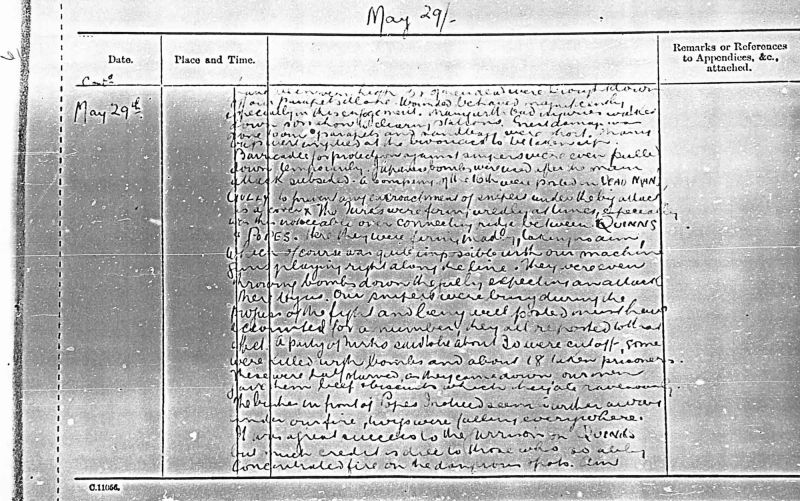 May 29/-
Date.
Place and Time.
Remarks or References
to Appendices, &c.,
attached.
Contd
May 29th
were brought down
of our parapet all the wounded behaved magnificently
especially in this engagement. Many with bad injuries walked
down to clearing stations. Great damage
done to our parapets and sandbags were short. Many
to be taken up.
Barricades for protection against snipers were even pulled
down temporarily. Japanese bombs were used after the main
attack subsided. A company of the 15th were posted in DEAD MAN'S
GULLY to prevent any encroachment of snipers under the big attack
as a cover. The Turks were firing wildly at times, especially
was this noticeable over connecting ridge between QUINNS
& POPES. Here they were firing madly, taking no aim,
which of course was quite impossible with our machine
guns playing right along the line. They were even
throwing bombs down the gully expecting an attack
there by us. Our snipers were busy during the
progress of the fight and being well posted must have
accounted for a number, they all reported to that
effect. A party of Turks said to be about 30 were cut off, some
were killed with bombs and about 18 taken prisoners.
These were half starved, as they came down our men
gave them beef & biscuits which they ate ravenously
The in front of Popes seem
under our fire, Turks were falling everywhere.
It was a great success to the garrison on QUINNS
but much credit is due to those who so ably
concentrated fire on the dangerous spots. Our
C.11056.